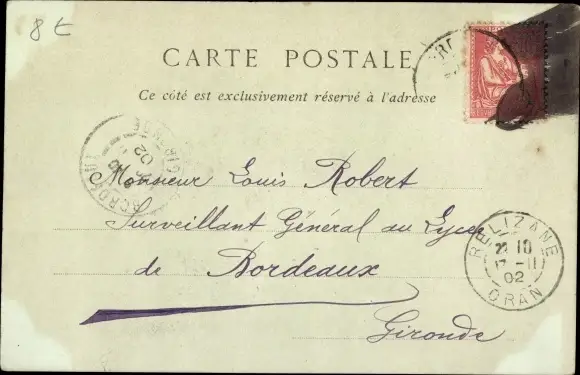 8 €
CARTE POSTALE
Ce côté est exclusivement réservé à l'adresse
BORDEAUX
GIRONDE
02
Monsieur Louis Robert
Surveillant Général au Lycée
de Bordeaux
Gironde
RELIZANE
22 10
17 -11
02
ORAN